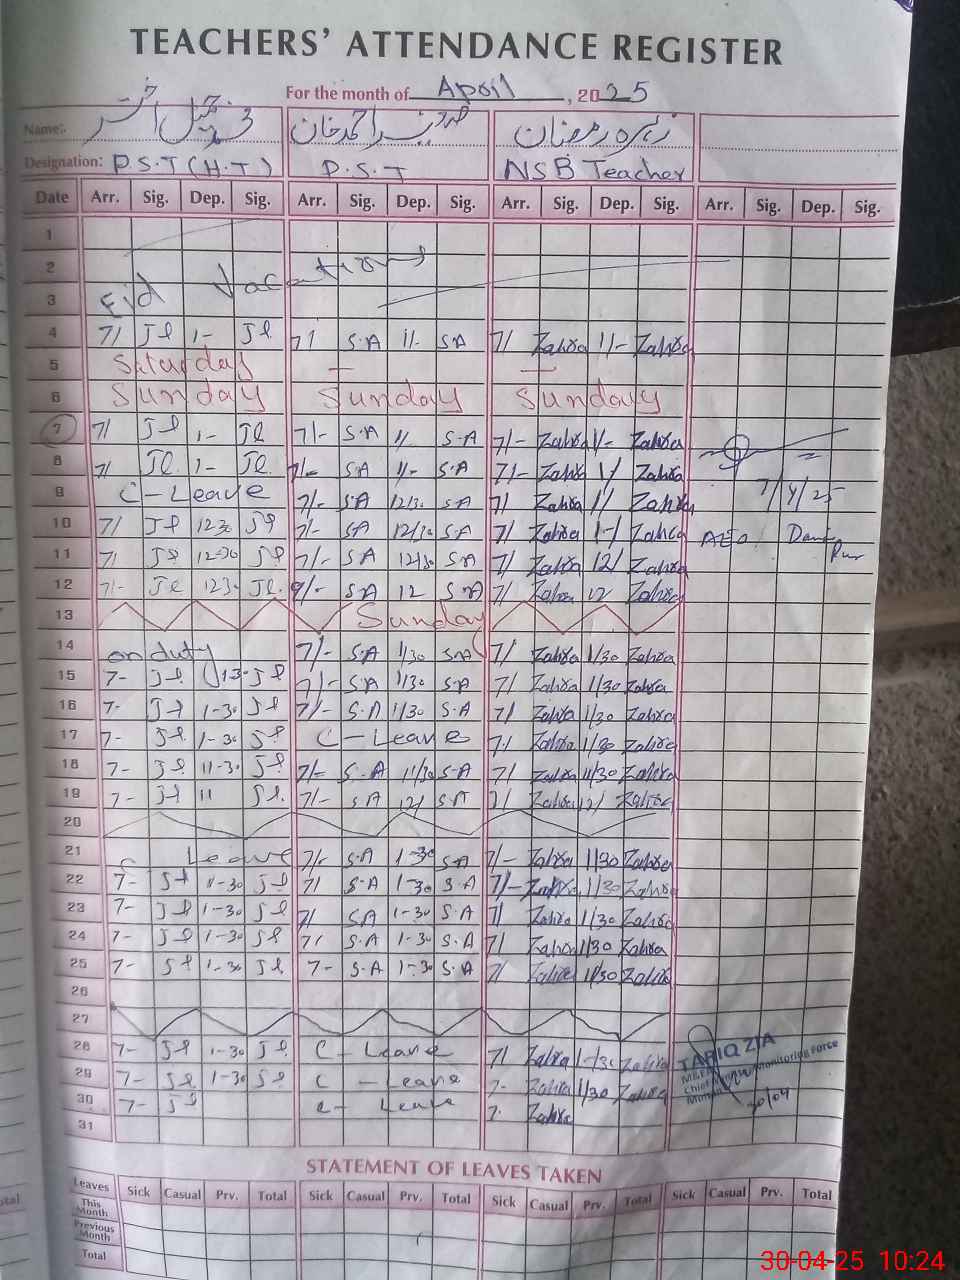 TEACHERS' ATTENDANCE REGISTER
For the month of April, 2025
Name:
Designation: P.S.T (H.T) P.S.T NSB Teacher
Date Arr. Sig. Dep. Sig. Arr. Sig. Dep. Sig. Arr. Sig. Dep. Sig. Arr. Sig. Dep. Sig.
1
2
3 Eid Vacation
4 7/ Jl 1- Jl 7/ S.A 1/- SA 7/ Zahra 1/- Zahra
5 Saturday
6 Sunday Sunday Sunday
7 7/ Jl 1- Jl 7/- S.A 1/ S.A 7/- Zahra 1/- Zahra
8 7/ Jl 1- Jl 7/- SA 1/- SA 7/- Zahra 1/ Zahra
9 C-Leave 7/- SA 12/30 SA 7/ Zahra 1/ Zahra 7/4/25
10 7/ Jl 1230 Jl 7/- SA 12/30 SA 7/ Zahra 1-/ Zahra AEO
11 7/ Jl 12-30 Jl 7/- SA 12/30 SA 7/ Zahra 12/ Zahra
12 7/- Jl 1230 Jl. 9/- SA 12 SA 7/ Zahra 12 Zahra
13 Sunday
14 on duty 7/- SA 1/30 SA 7/ Zahra 1/30 Zahra
15 7- Jl 1-30 Jl 7/- SA 1/30 SA 7/ Zahra 1/30 Zahra
16 7- Jl 1-30 Jl 7/- S.A 1/30 SA 7/ Zahra 1/30 Zahra
17 7- Jl 1-30 Jl C-Leave 7/ Zahra 1/30 Zahra
18 7- Jl 11-30 Jl 7/- S.A 11/30 SA 7/ Zahra 11/30 Zahra
19 7- Jl 11 Jl. 7/- SA 12/ SA 7/ Zahra 12/ Zahra
20
21 C Leave 7/- SA 1-30 SA 7/- Zahra 1/30 Zahra
22 7- Jl 11-30 Jl 7/ S.A 1-30 S.A 7/- Zahra 1/30 Zahra
23 7- Jl 1-30 Jl 7/ SA 1-30 S.A 7/ Zahra 1/30 Zahra
24 7- Jl 1-30 Jl 7/ S.A 1-30 S.A 7/ Zahra 1/30 Zahra
25 7- Jl 1-30 Jl 7- S.A 1-30 S.A 7/ Zahra 1/30 Zahra
26
27
28 7- Jl 1-30 Jl C-Leave 7/ Zahra 1-/30 Zahra
TARIQ ZIA
29 7- Jl 1-30 Jl C-Leave 7- Zahra 1/30 Zahra
Monitoring Force
30 7- Jl C-Leave 7- Zahra
30/04
31
STATEMENT OF LEAVES TAKEN
Leaves Sick Casual Prv. Total Sick Casual Prv. Total Sick Casual Prv. Total Sick Casual Prv. Total
This Month
Previous Month
Total
30-04-25 10:24